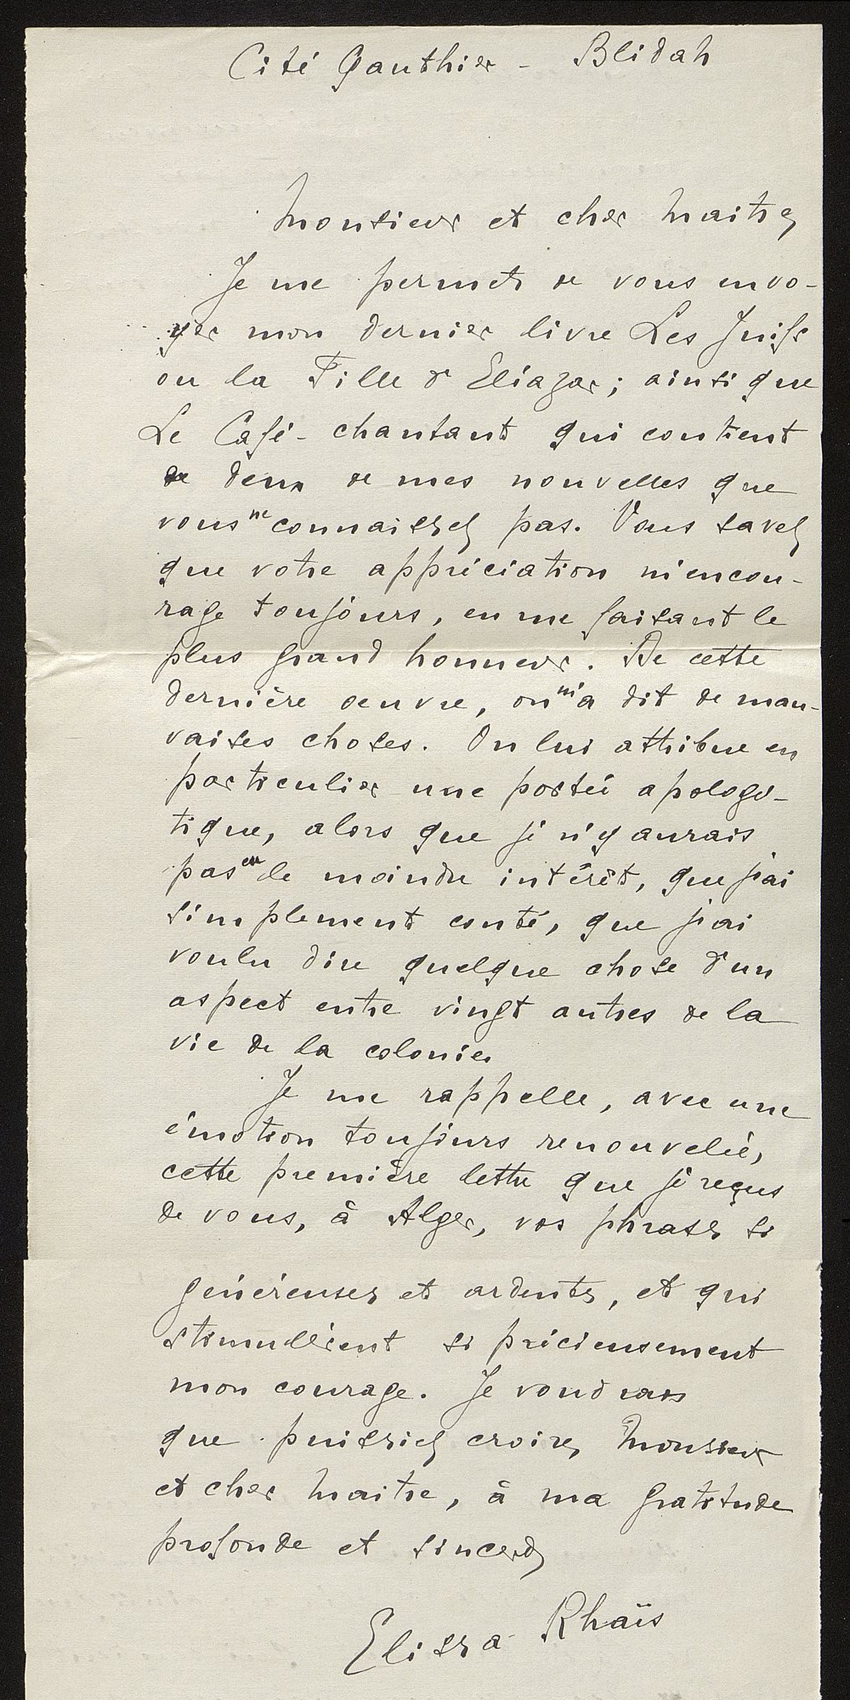 Cité Gauthier - Blidah
Monsieur et cher Maitre,
Je me permets de vous envo-
yer mon dernier livre Les Juifs
ou la Fille d'Eléazar; ainsi que
Le Café-chantant qui contient
de deux de mes nouvelles que
vous ne connaissez pas. Vous savez
que votre appréciation m'encou-
rage toujours, en me faisant le
plus grand honneur. De cette
dernière oeuvre, on m'a dit de mau-
vaises choses. On lui attribue en
particulier une portée apologé-
tique, alors que je n'y aurais
pas eu le moindre intérêt, que j'ai
simplement conté, que j'ai
voulu dire quelque chose d'un
aspect entre vingt autres de la
vie de la colonie.
Je me rappelle, avec une
émotion toujours renouvelée,
cette première lettre que je reçus
de vous, à Alger, vos phrases si
généreuses et ardentes, et qui
stimulèrent si précieusement
mon courage. Je voudrais
que puissiez croire, Monsieur
et cher Maitre, à ma gratitude
profonde et sincère,
Elissa Rhaïs